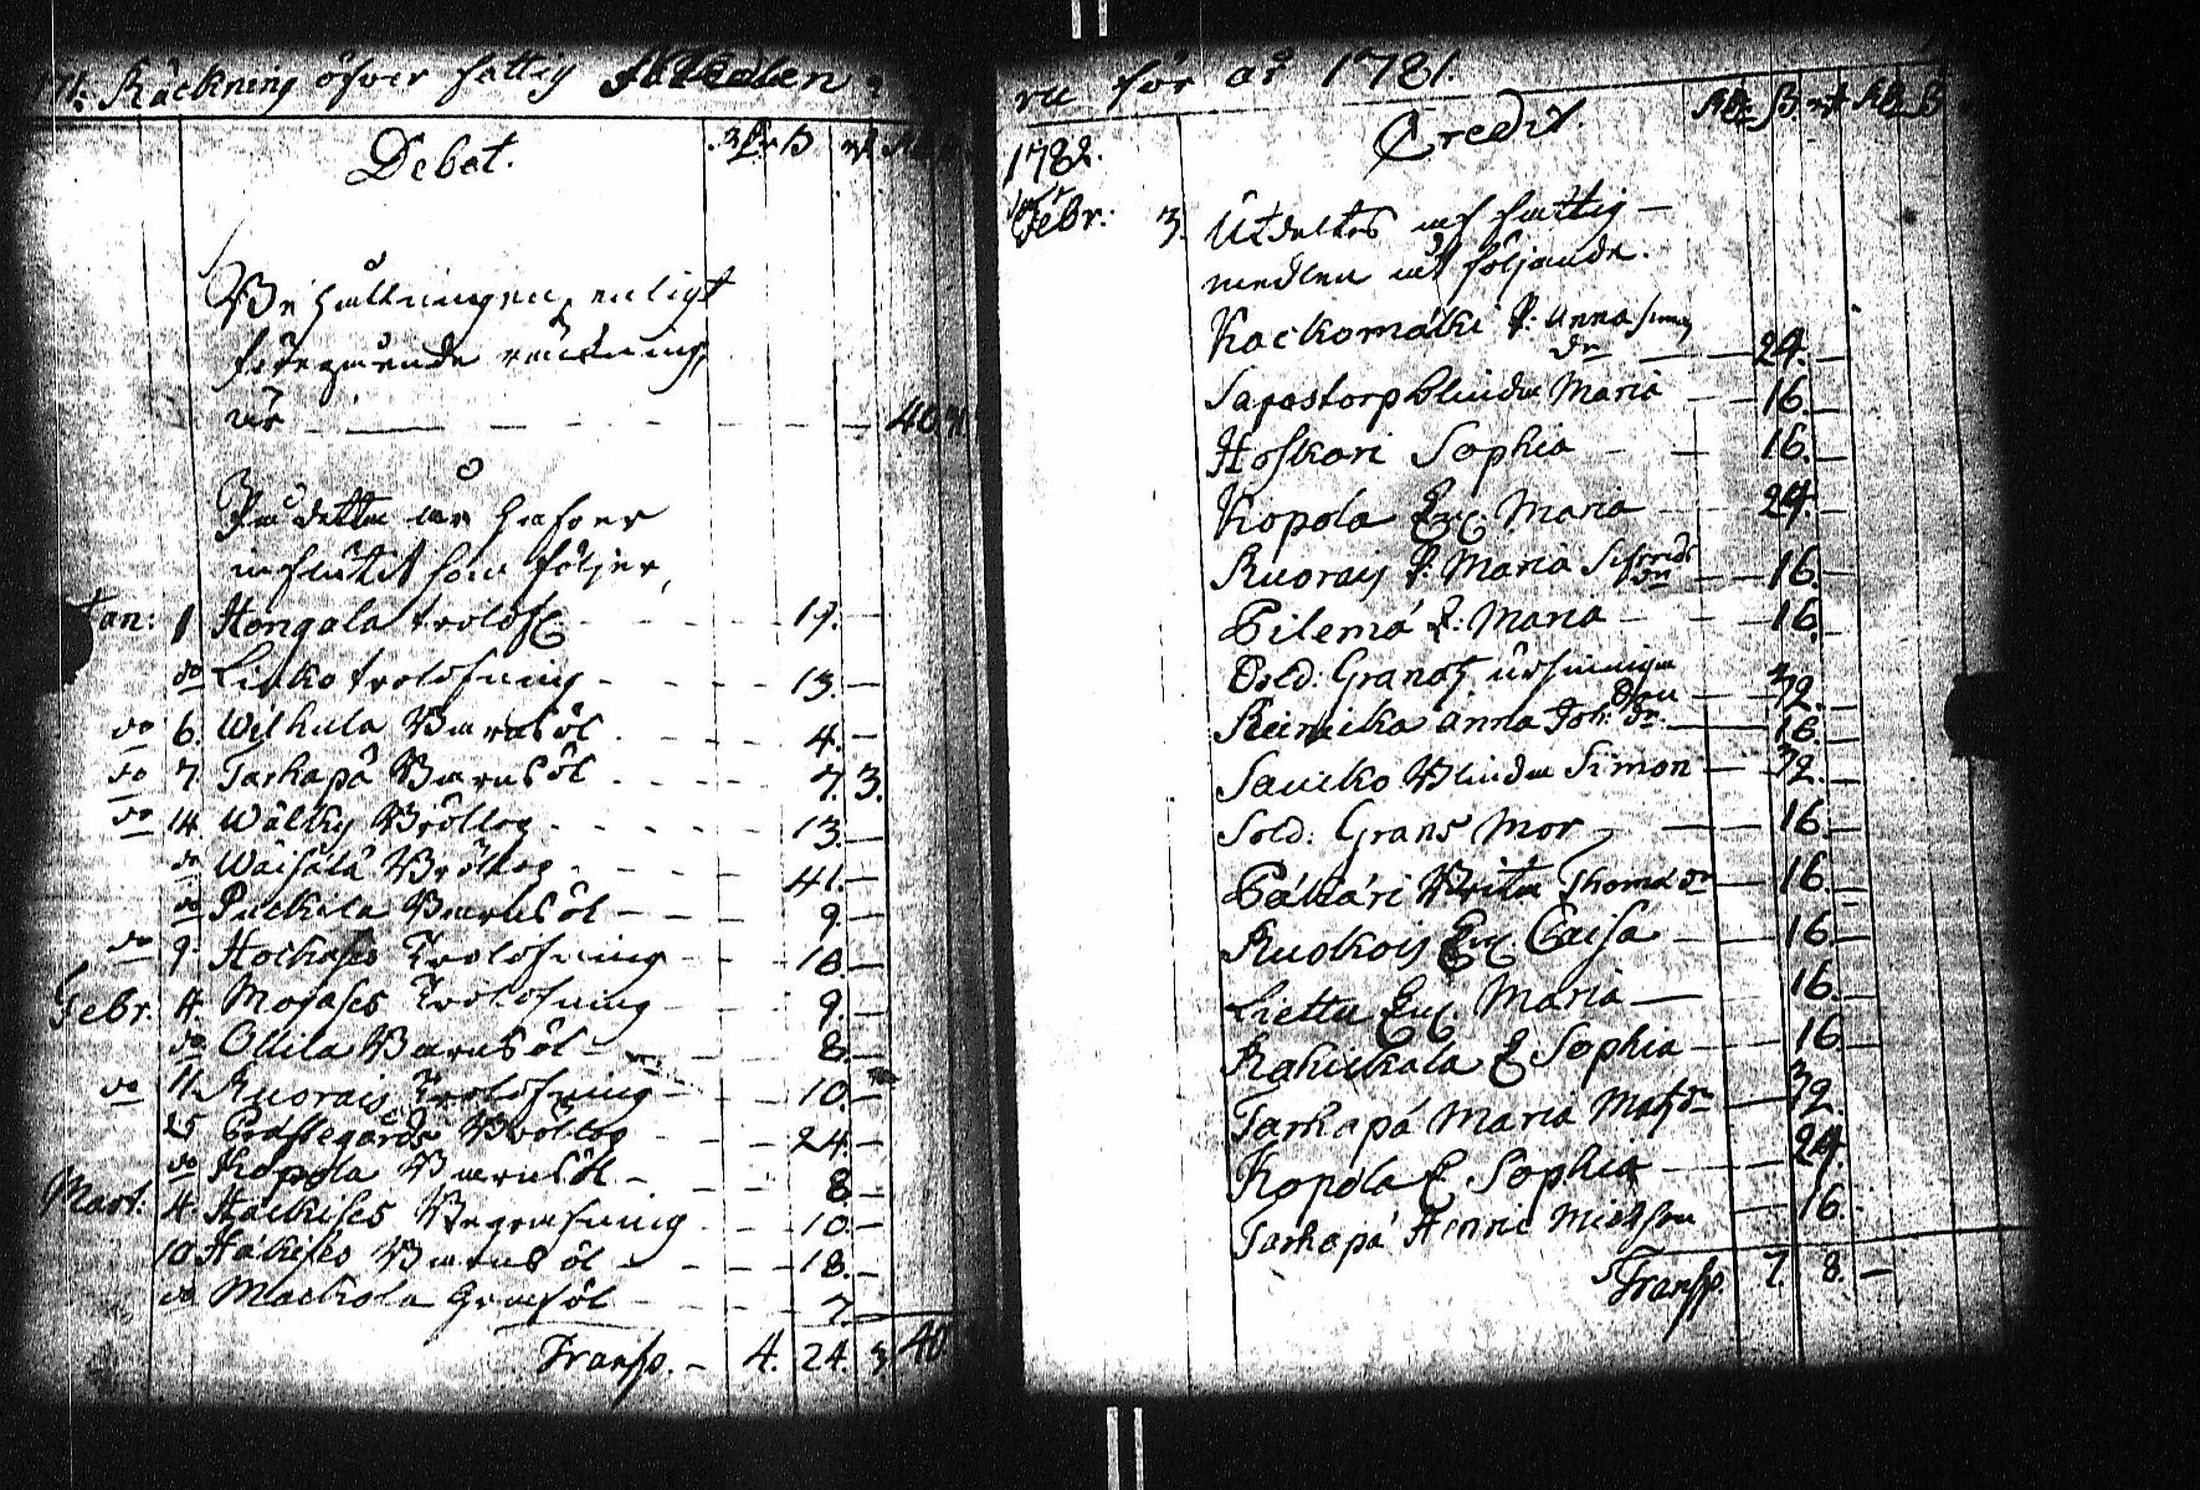 Räckning öfver fattig
Debet.
Rdr ß
Behållningen, enligt
föregående räkning,
är 40
På detta år hafver
influtit som följer,
Jan: 1 Hongala trolofn 19.
do Lieko trolofning 13.
do 6. Wilhula Barnsöl 4.
do 7. Tarhapä Barnsöl 7. 3.
do 14. Wälky Bröllop 13.
do Wäisälä Bröllop 41.
do Puckila Barnsöl 9.
do 9. Trolofning 10.
Febr. 4. Mojases Trolofning 9.
do Ollila Barnsöl 8.
do 11. Kuorais Trolofning 10.
25 Prästegårds Bröllop 24.
do Kopola Barnsöl 8.
Mart: 4. Häckises Begrafning 10.
10 Häkises Barnsöl 18.
do Mackola Graföl 7.
Transp. 4. 24. 3 40
för år 1781.
Credit.
1782.
Febr: 3. Utdeltes af fattig-
medlen åt följande.
Kackomäki P: Anna Sims
dr 24.
Sapastorp blinda Maria 16.
Hofkari Sophia 16.
Kopola Enk. Maria 24.
Kuorais P: Maria Sifreds
dr 16.
Pilemä E: Maria 16.
Sold: Grans ursinniga
Son 32.
Reinicka Anna Joh: dr. 16.
Saucko Blinda Simon 32.
Sold: Grans Mor 16.
Päkäri Brita Thomædr 16.
Ruokois Enk. Caisa 16.
Lietta Enk. Maria 16.
Kahickala E Sophia 16.
Tarhapä Maria Matsdr 32.
Kopola E Sophia 24.
Tarhapä Henric Mickson 16.
Transp. 7. 8.